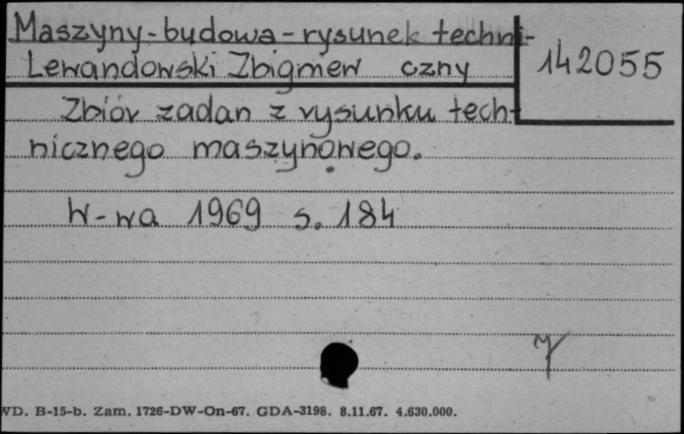 Maszyny-budowa-rysunek techni-
Lewandowski Zbigniew czny
142055
Zbiór zadan z rysunku tech-
nicznego maszynowego.
W-wa 1969 s. 184
WD. B-15-b. Zam. 1726-DW-On-67. GDA-3198. 8.11.67. 4.630.000.